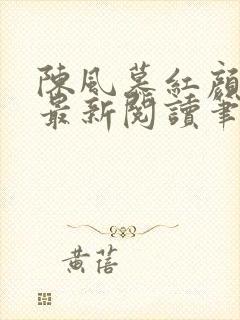 陳風慕紅顏
最新閱讀筆
黃蓓